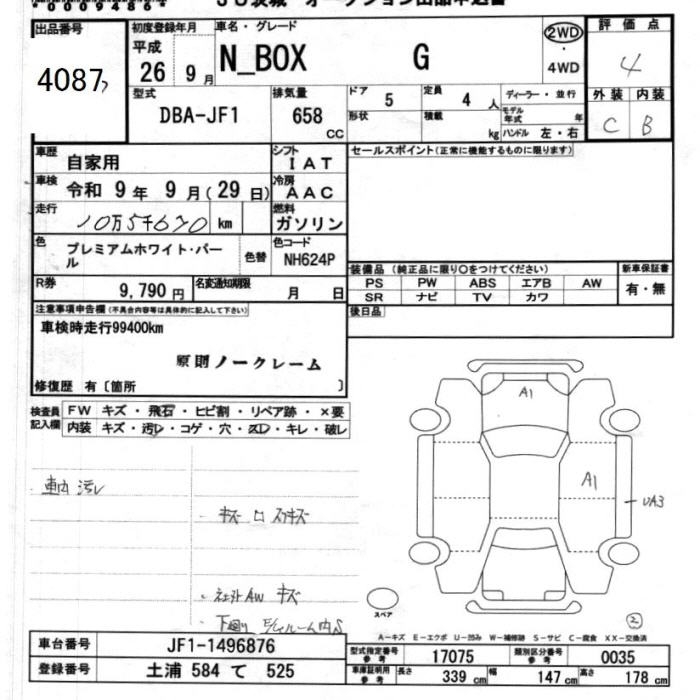 *0009486*
JU茨城 オークション出品申込書
出品番号 4087
初度登録年月 平成 26 9月
車名・グレード N_BOX G
2WD・4WD
評価点 4
型式 DBA-JF1
排気量 658 CC
ドア 5
形状
定員 4 人
積載 kg
ディーラー・並行
モデル年式 年
ハンドル 左・右
外装 C
内装 B
車歴 自家用
シフト IAT
セールスポイント(正常に機能するものに限ります)
車検 令和 9年 9月(29日)
冷房 AAC
走行 10万5千670 km
燃料 ガソリン
色 プレミアムホワイト・パール
色替
色コード NH624P
装備品(純正品に限り○をつけてください)
新車保証書
PS PW ABS エアB AW
有・無
SR ナビ TV カワ
R券 9,790円
名変通知期限 月 日
後日品
注意事項申告欄(不具合内容等は具体的に記入して下さい)
車検時走行99400km
原則ノークレーム
修復歴 有〔箇所 〕
検査員記入欄
FW キズ・飛石・ヒビ割・リペア跡・×要
内装 キズ・汚レ・コゲ・穴・スレ・キレ・破レ
A1
A1
UA3
車内 汚レ
・キズ
・社外AW キズ
・下廻り
スペア
②
A-キズ E-エクボ U-凹み W-補修跡 S-サビ C-腐食 XX-交換済
車台番号 JF1-1496876
型式指定番号 参考 17075
類別区分番号 参考 0035
登録番号 土浦 584 て 525
車庫証明用 参考 長さ 339 cm 幅 147 cm 高さ 178 cm